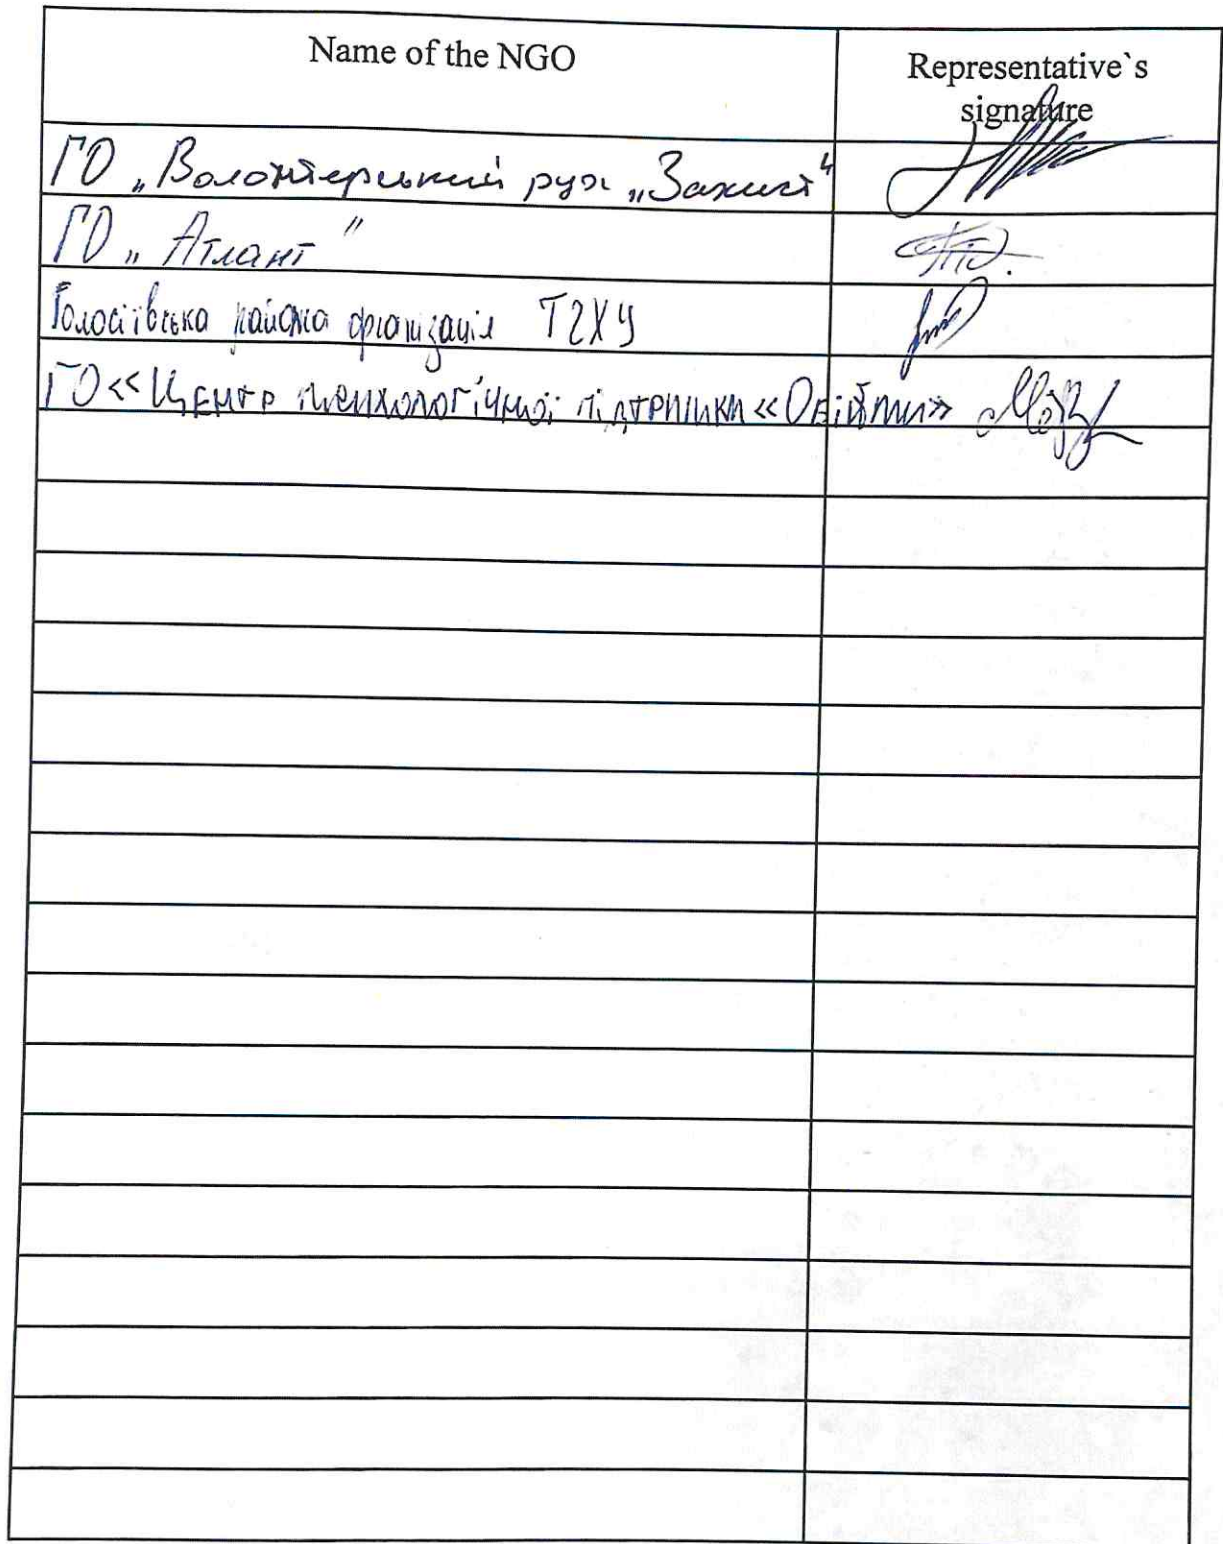 Name of the NGO
Representative`s
signature
ГО „Волонтерський рух „Захист"
ГО „Атлант"
Голосіївська районна організація ТЧХУ
ГО «Центр психологічної підтримки «Обійми»